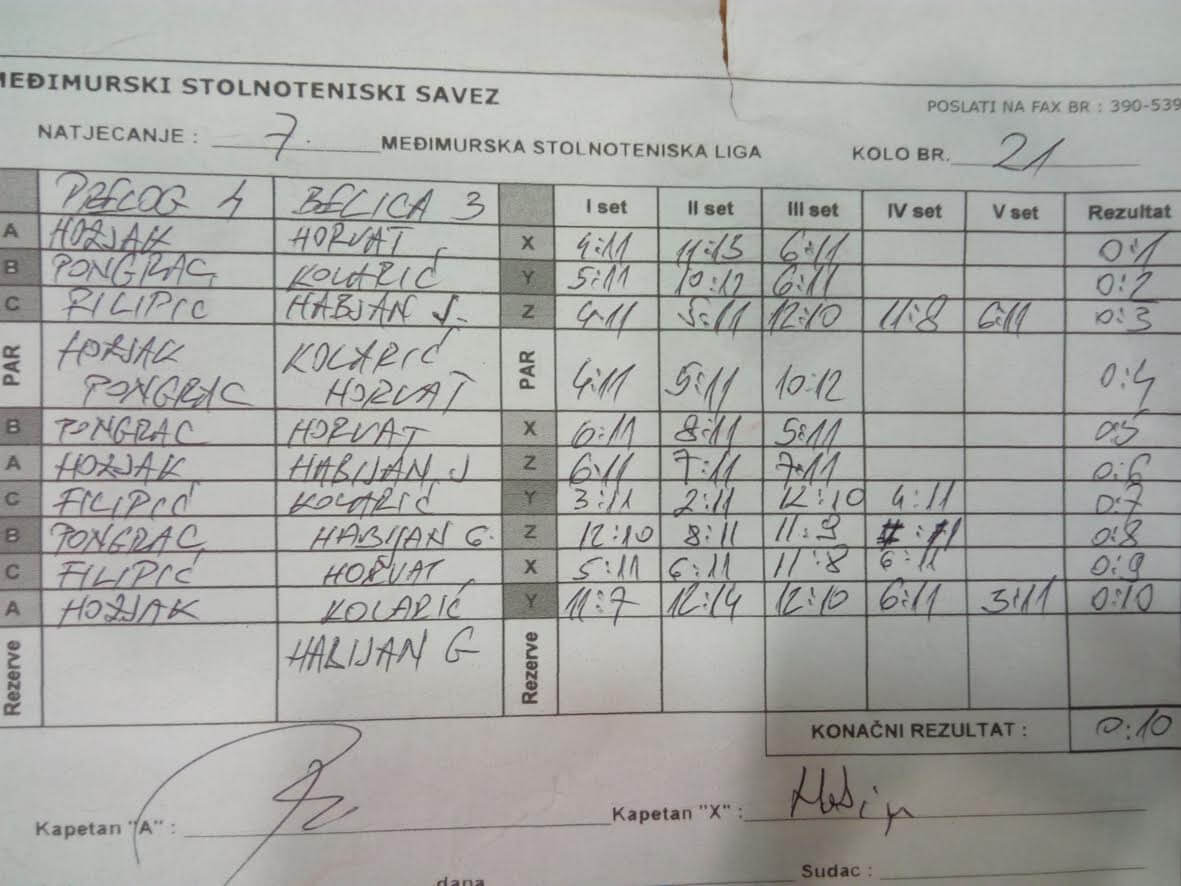 MEĐIMURSKI STOLNOTENISKI SAVEZ
POSLATI NA FAX BR : 390-539
NATJECANJE : 7. MEĐIMURSKA STOLNOTENISKA LIGA KOLO BR. 21
PRELOG 4 BELICA 3 I set II set III set IV set V set Rezultat
A HOZJAK HORVAT X 4:11 11:13 6:11 0:1
B PONGRAC KOLARIĆ Y 5:11 10:12 6:11 0:2
C FILIPIĆ HABJAN J. Z 4:11 5:11 12:10 11:8 6:11 0:3
PAR HOZJAK KOLARIĆ PAR
PONGRAC HORVAT 4:11 5:11 10:12 0:4
B PONGRAC HORVAT X 6:11 8:11 5:11 0:5
A HOZJAK HABIJAN J Z 6:11 7:11 7:11 0:6
C FILIPIĆ KOLARIĆ Y 3:11 2:11 12:10 4:11 0:7
B PONGRAC HABIJAN G. Z 12:10 8:11 11:9 0:8
C FILIPIĆ HORVAT X 5:11 6:11 11:8 6:11 0:9
A HOZJAK KOLARIĆ Y 11:7 12:14 12:10 6:11 3:11 0:10
Rezerve HABIJAN G Rezerve
KONAČNI REZULTAT : 0:10
Kapetan "A" : Kapetan "X" :
dana Sudac :